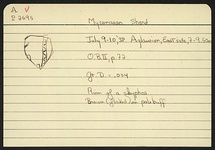 A V
P 2695
Mycenaean Sherd
July 9-10, 38. East side,
O.B. II, p. 77
Gr. D. = .054
Rim of a skyphos
Brown glaze on pale buff